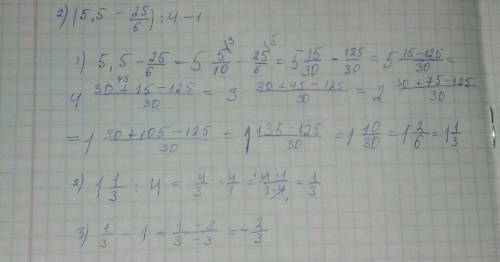 2) (5,5 - 25/6) : 4 - 1
1) 5,5 - 25/6 = 5 5/10 - 25/6 = 5 15/30 - 125/30 = 5 15-125/30 =
4 30+15-125/30 = 3 30+45-125/30 = 2 30+75-125/30
= 1 30+105-125/30 = 1 135-125/30 = 1 10/30 = 1 2/6 = 1 1/3
2) 1 1/3 : 4 = 4/3 · 4/1 = 4·1/3·4 = 1/3
3) 1/3 - 1 = 1-3/3-3 = -2/3